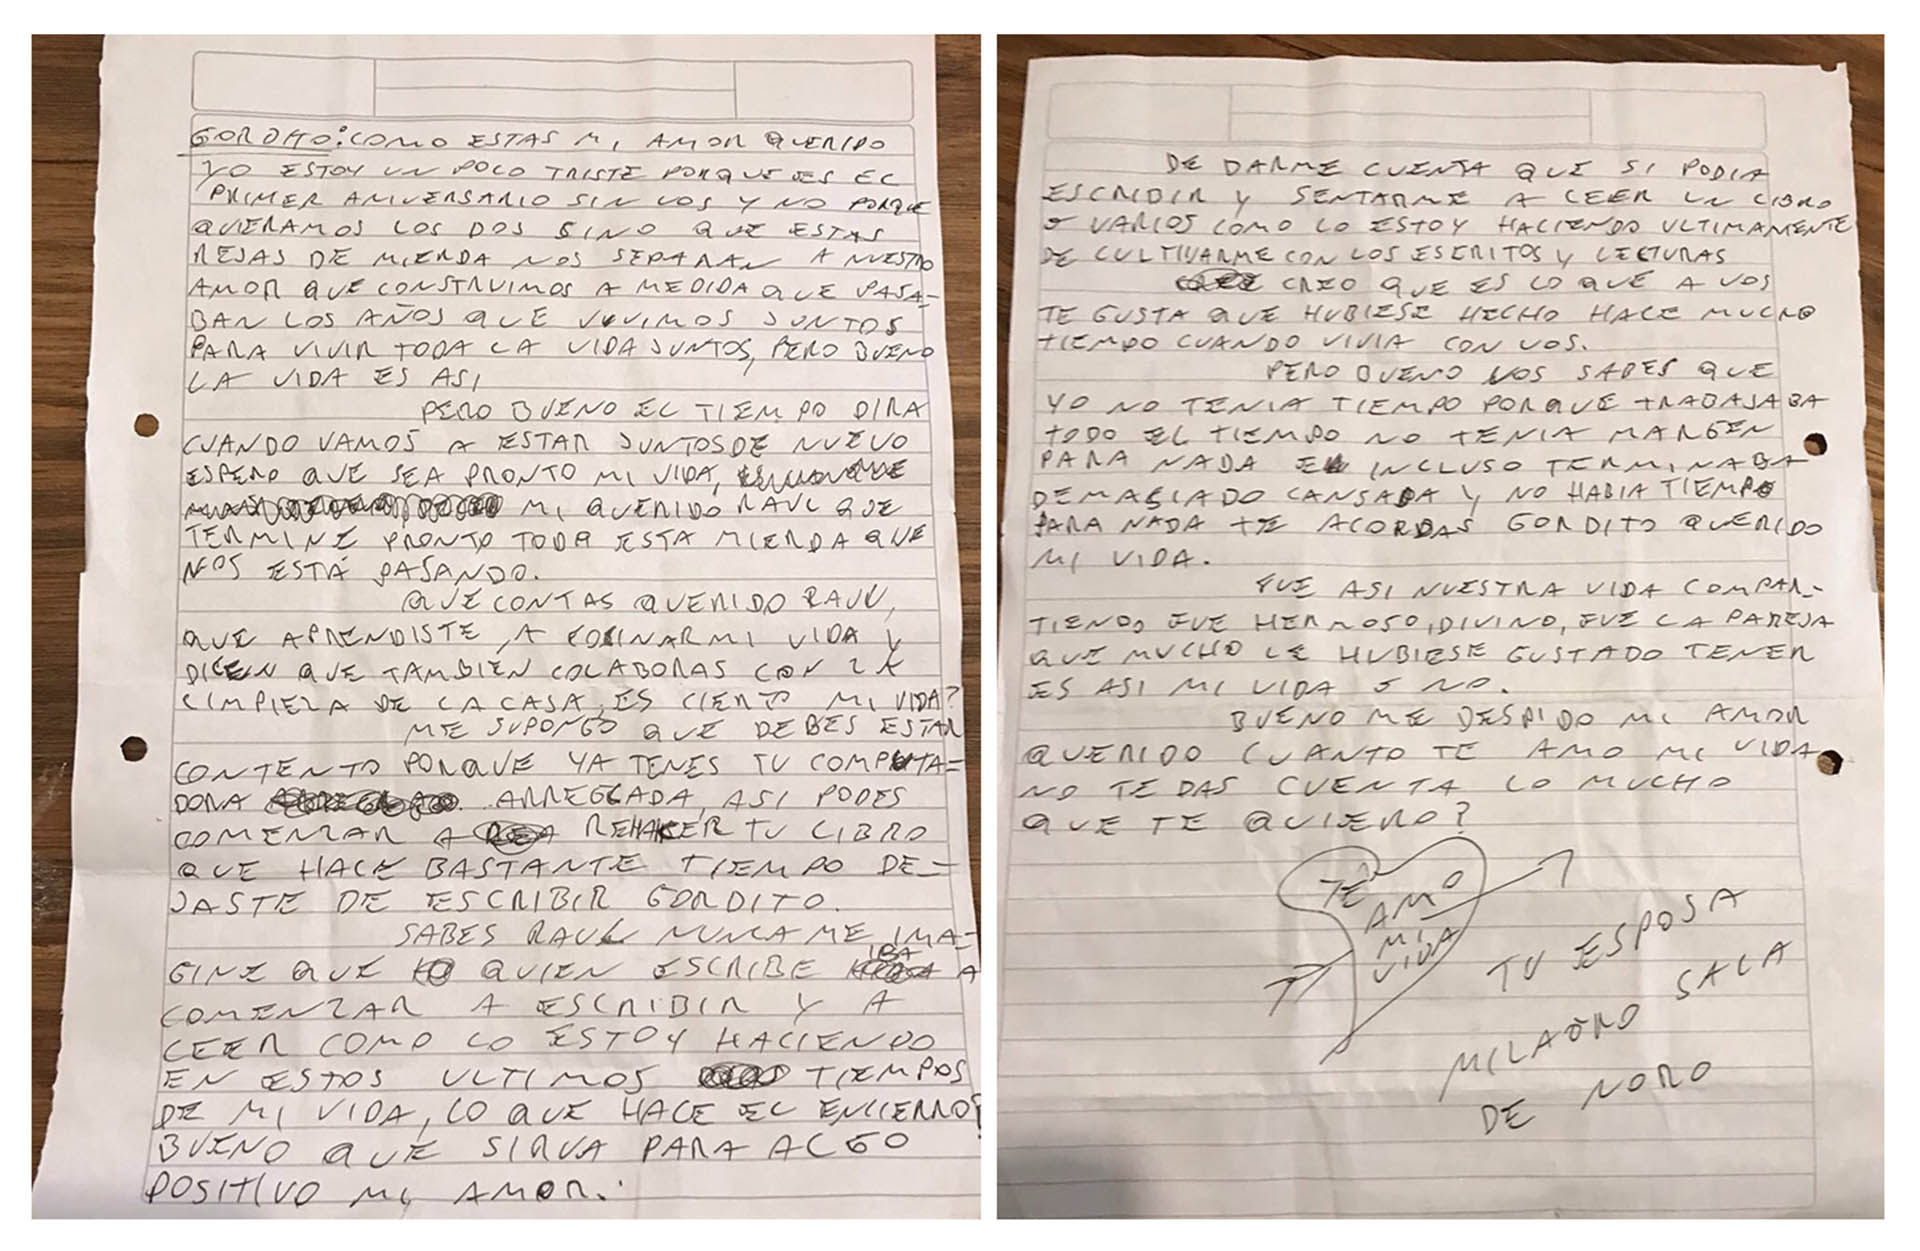 GORDITO: COMO ESTAS MI AMOR QUERIDO
YO ESTOY UN POCO TRISTE PORQUE ES EL
PRIMER ANIVERSARIO SIN VOS Y NO PORQUE
QUERAMOS LOS DOS SINO QUE ESTAS
REJAS DE MIERDA NOS SEPARAN A NUESTRO
AMOR QUE CONSTRUIMOS A MEDIDA QUE PASA-
BAN LOS AÑOS QUE VIVIMOS JUNTOS
PARA VIVIR TODA LA VIDA JUNTOS, PERO BUENO
LA VIDA ES ASI
PERO BUENO EL TIEMPO DIRA
CUANDO VAMOS A ESTAR JUNTOS DE NUEVO
ESPERO QUE SEA PRONTO MI VIDA,
MI QUERIDO RAUL QUE
TERMINE PRONTO TODA ESTA MIERDA QUE
NOS ESTÁ PASANDO.
QUE CONTAS QUERIDO RAUL,
QUE APRENDISTE A COCINAR MI VIDA Y
DICEN QUE TAMBIEN COLABORAS CON LA
LIMPIEZA DE LA CASA, ES CIERTO MI VIDA?
ME SUPONGO QUE DEBES ESTAR
CONTENTO PORQUE YA TENES TU COMPUTA-
DORA ARREGLADA, ASI PODES
COMENZAR A REHACER TU LIBRO
QUE HACE BASTANTE TIEMPO DE-
JASTE DE ESCRIBIR GORDITO.
SABES RAUL NUNCA ME IMA-
GINE QUE QUIEN ESCRIBE IBA A
COMENZAR A ESCRIBIR Y A
LEER COMO LO ESTOY HACIENDO
EN ESTOS ULTIMOS TIEMPOS
DE MI VIDA, LO QUE HACE EL ENCIERRO?
BUENO QUE SIRVA PARA ALGO
POSITIVO MI AMOR.
DE DARME CUENTA QUE SI PODIA
ESCRIBIR Y SENTARME A LEER UN LIBRO
O VARIOS COMO LO ESTOY HACIENDO ULTIMAMENTE
DE CULTIVARME CON LOS ESCRITOS Y LECTURAS
CREO QUE ES LO QUE A VOS
TE GUSTA QUE HUBIESE HECHO HACE MUCHO
TIEMPO CUANDO VIVIA CON VOS.
PERO BUENO VOS SABES QUE
YO NO TENIA TIEMPO PORQUE TRABAJABA
TODO EL TIEMPO NO TENIA MARGEN
PARA NADA E INCLUSO TERMINABA
DEMACIADO CANSADA Y NO HABIA TIEMPO
PARA NADA TE ACORDAS GORDITO QUERIDO
MI VIDA.
FUE ASI NUESTRA VIDA COMPAR-
TIENDO, FUE HERMOSO, DIVINO, FUE LA PAREJA
QUE MUCHO LE HUBIESE GUSTADO TENER
ES ASI MI VIDA O NO.
BUENO ME DESPIDO MI AMOR
QUERIDO CUANTO TE AMO MI VIDA
NO TE DAS CUENTA LO MUCHO
QUE TE QUIERO?
TE
AMO
MI
VIDA
TU ESPOSA
MILAGRO SALA
DE NORO